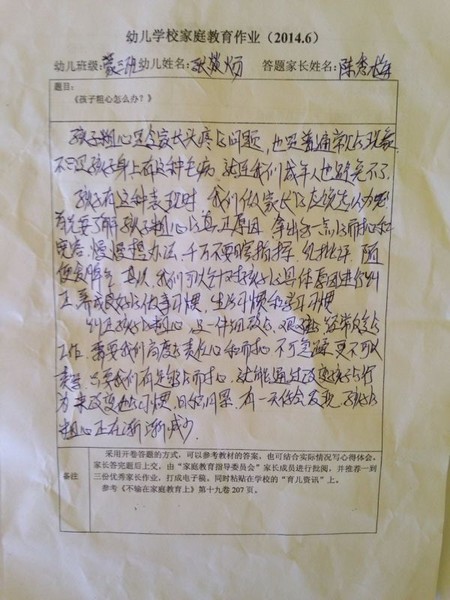 幼儿学校家庭教育作业（2014.6）
幼儿班级：蒙三班 幼儿姓名： 答题家长姓名：陈秀
题目：
《孩子粗心怎么办？》
孩子粗心是令家长头疼的问题，也是普遍常见的现象
不仅孩子身上有这种毛病，就连我们成年人也避免不了。
孩子有这种表现时，我们做家长的应该先
首先要了解孩子粗心的真正原因，拿出多一点的耐心和
宽容，慢慢想办法，千万不要瞎指挥，乱批评，随
便发脾气。其次，我们可以针对孩子的具体原因进行纠
正，养成良好的做事习惯，生活习惯和学习习惯
纠正孩子的粗心，是一件细致的，艰难的，经常的
工作，需要我们高度的责任心和耐心，不可怠懈，更不可以
，只要我们有足够的耐心，就能通过改变孩子的行
为来改变他的习惯，日积月累，有一天你会发现，孩子的
粗心正在渐渐减少。
备注
采用开卷答题的方式，可以参考教材的答案，也可结合实际情况写心得体会。
家长答完题后上交，由“家庭教育指导委员会”家长成员进行批阅，并推荐一到
三份优秀家长作业，打成电子稿，同时粘贴在学校的“育儿资讯”上。
参考《不输在家庭教育上》第十九卷 207 页。